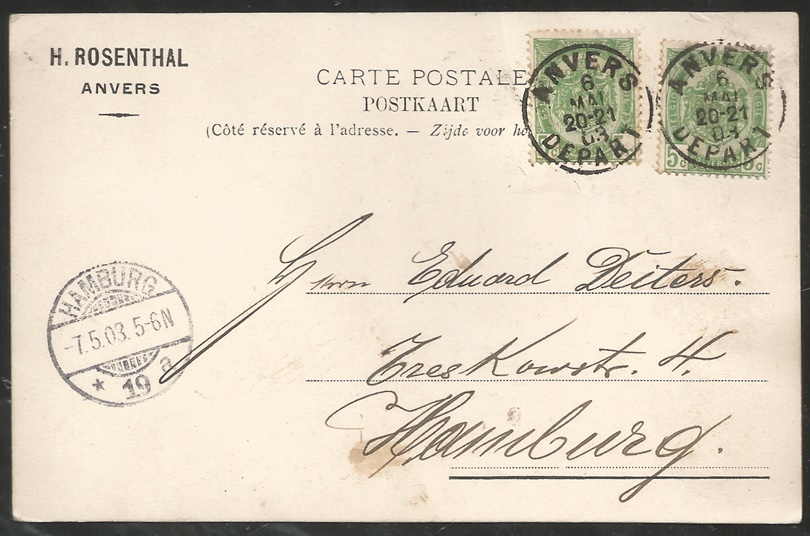 H. ROSENTHAL
ANVERS
CARTE POSTALE
POSTKAART
(Côté réservé à l'adresse. — Zijde voor he
ANVERS
6
MAI
20-21
03
DEPART
ANVERS
6
MAI
20-21
03
DEPART
5c 5c
HAMBURG
-7.5.03.5-6N
* 19 a
Herrn Eduard Deiters.
Treskowstr. 4.
Hamburg.